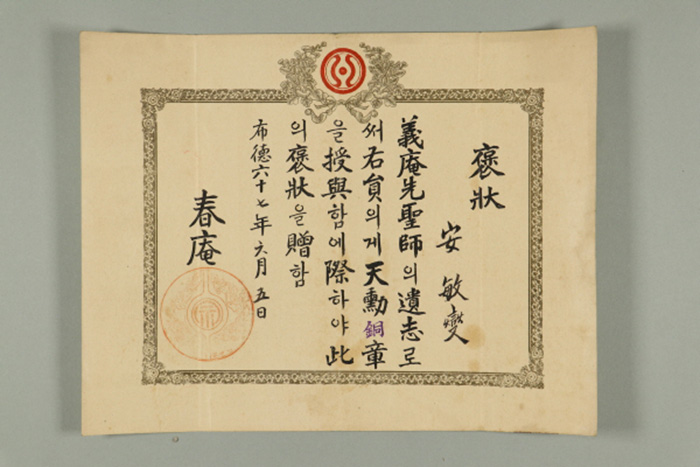 褒狀
安敏爕
義庵先聖師의遺志로
써右員의게天勳銅章
을授與함에際하야此
의褒狀을贈함
布德六十七年六月五日
春庵